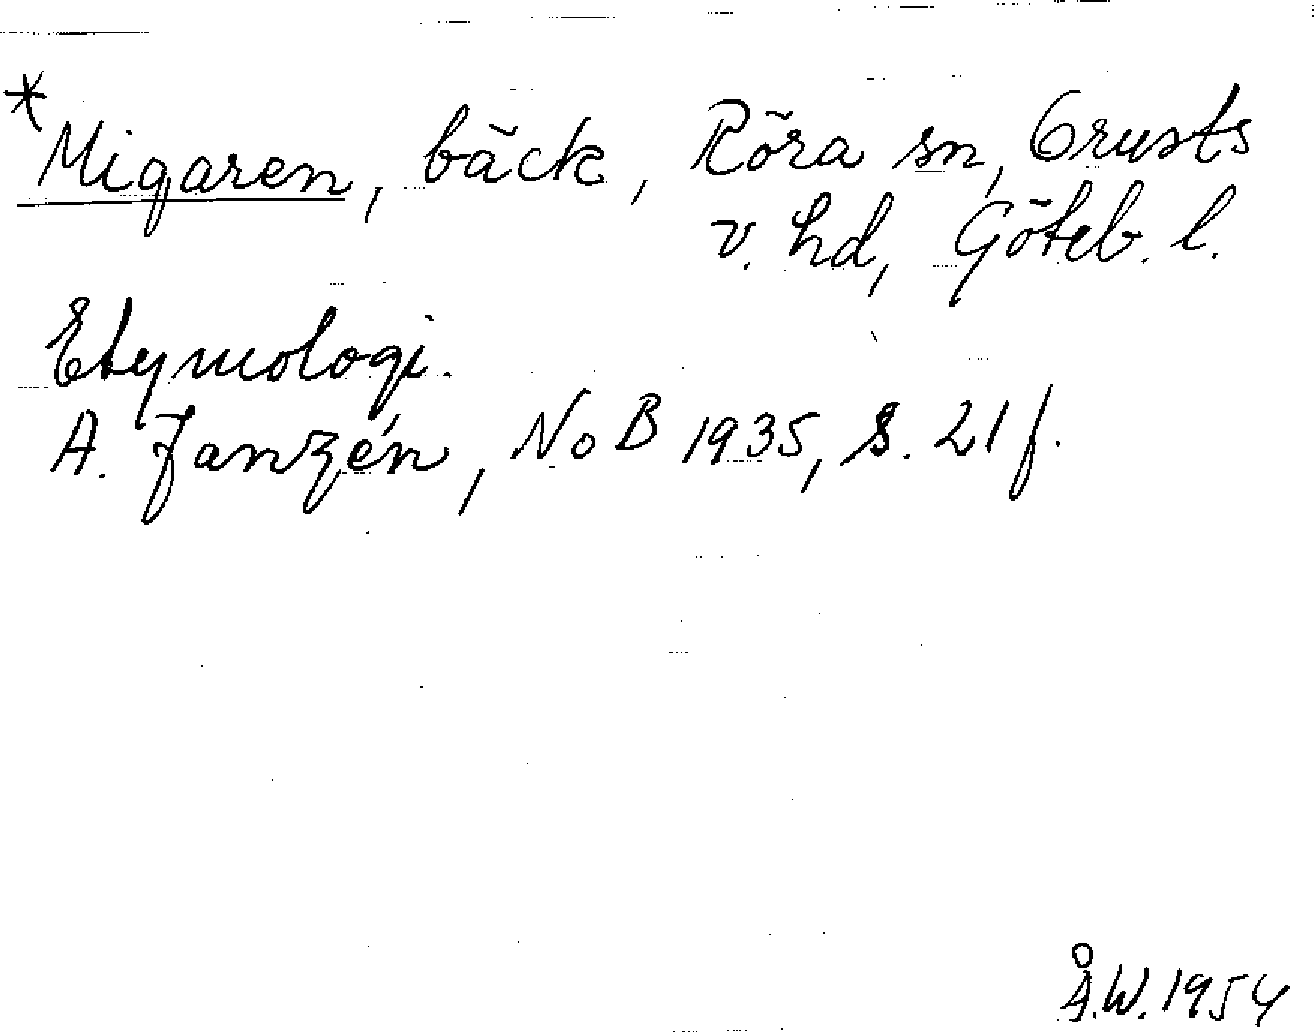 *Migaren, bäck, Röra sn, Orusts
v. hd, Göteb. l.
Etymologi.
A. Janzén, NoB 1935, s. 21 f.
Å.W. 1954